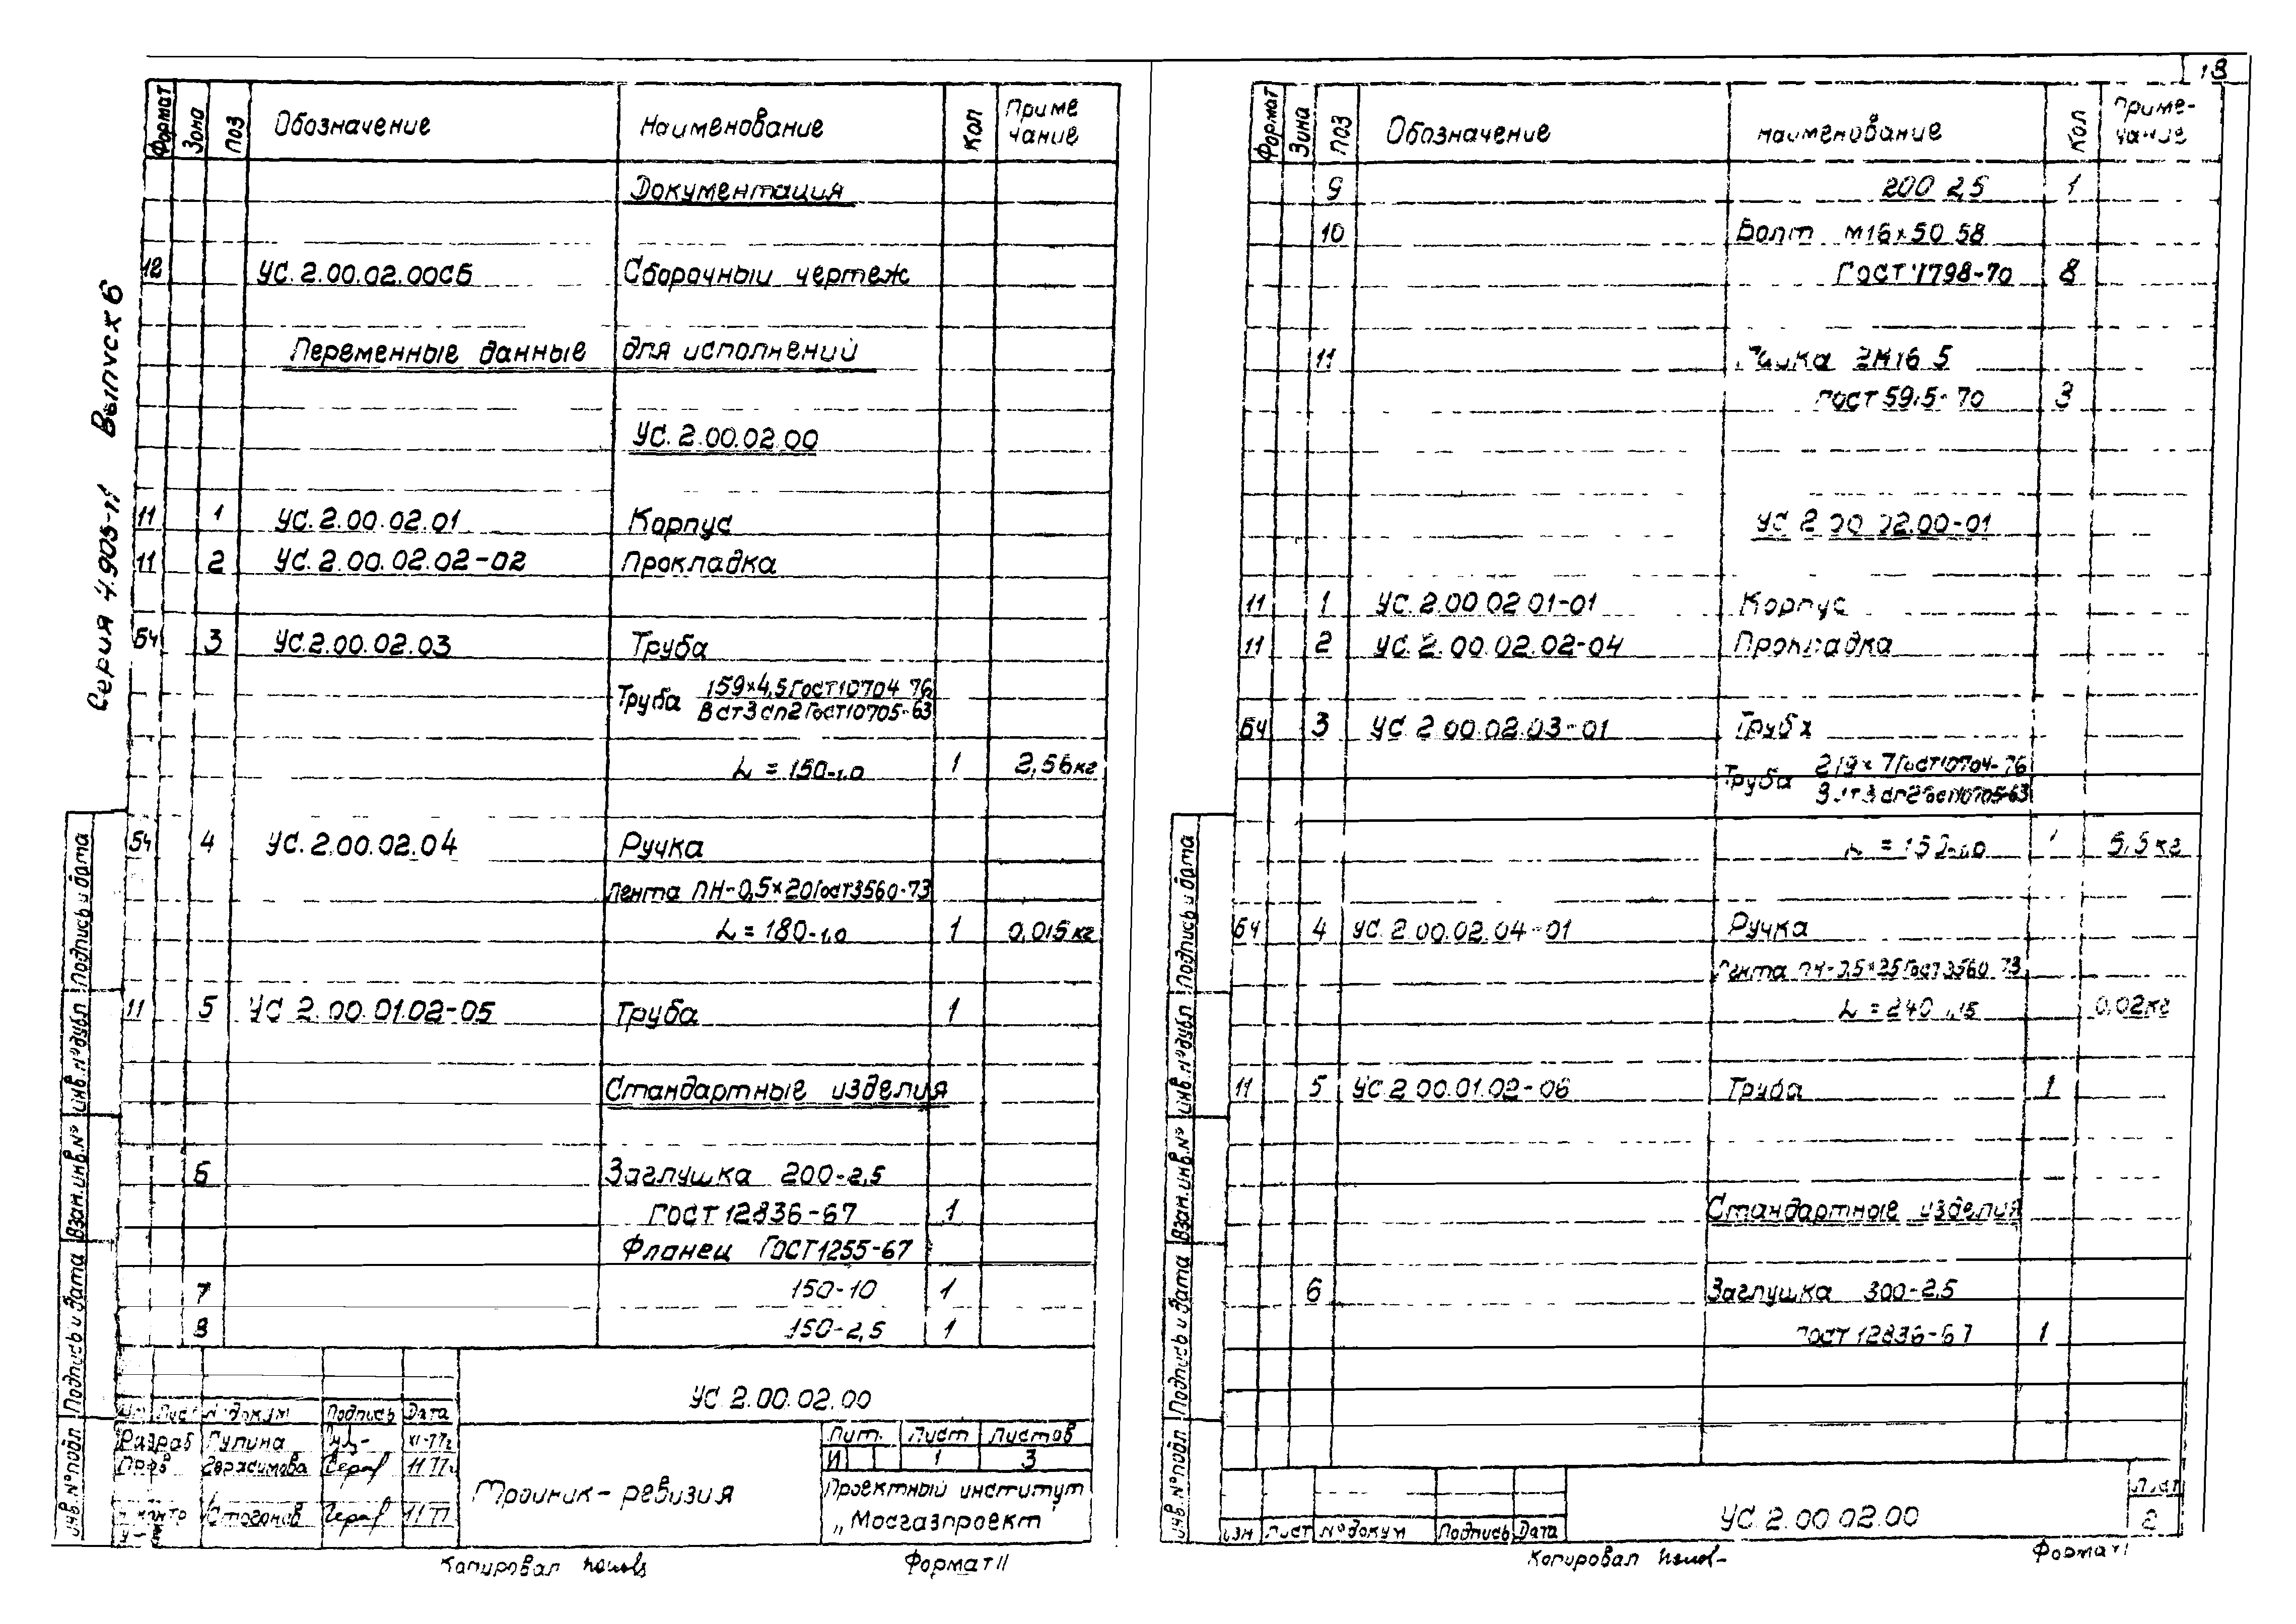 18
Серия 4.905-11 Выпуск 6
Формат Зона Поз Обозначение Наименование Кол Примечание
Документация
12 УС.2.00.02.00СБ Сборочный чертеж
Переменные данные для исполнений
УС.2.00.02.00
11 1 УС.2.00.02.01 Корпус
11 2 УС.2.00.02.02-02 Прокладка
БЧ 3 УС.2.00.02.03 Труба
Труба 159×4,5 ГОСТ 10704-76
ВСт3сп2 ГОСТ 10705-63
L = 150-1,0 1 2,56кг
БЧ 4 УС.2.00.02.04 Ручка
Лента ПН-0,5×20 ГОСТ 3560-73
L = 180-1,0 1 0,015кг
11 5 УС 2.00.01.02-05 Труба 1
Стандартные изделия
6 Заглушка 200-2,5
ГОСТ 12836-67 1
Фланец ГОСТ 1255-67
7 150-10 1
8 150-2,5 1
УС 2.00.02.00
Лист № докум Подпись Дата
Разраб Гулина XI-77г
Пров Герасимова 11 77г
Н.контр 11 77
Тройник-ревизия
Лит. Лист Листов
И 1 3
Проектный институт
„Мосгазпроект"
Копировал Формат 11
Инв.№ подл Подпись и дата Взам.инв.№ Инв.№ дубл Подпись и дата
Формат Зона Поз Обозначение Наименование Кол Примечание
9 200 2,5 1
10 Болт М16×50 58
ГОСТ 7798-70 8
11 Гайка 2М16 5
ГОСТ 5915-70
УС 2.00.02.00-01
11 1 УС.2.00.02.01-01 Корпус
11 2 УС.2.00.02.02-04 Прокладка
БЧ 3 УС 2.00.02.03-01 Труба
Труба 219×7 ГОСТ 10704-76
ВСт3сп2 ГОСТ 10705-63
1 5,5кг
БЧ 4 УС 2.00.02.04-01 Ручка
Лента ПН-0,5×25 ГОСТ 3560-73
L = 240 0,02кг
11 5 УС 2.00.01.02-06 Труба 1
Стандартные изделия
6 Заглушка 300-2,5
ГОСТ 12836-67 1
Изм Лист № докум Подпись Дата
УС 2.00.02.00
Лист
2
Копировал Формат 11
Инв.№ подл Подпись и дата Взам.инв.№ Инв.№ дубл Подпись и дата